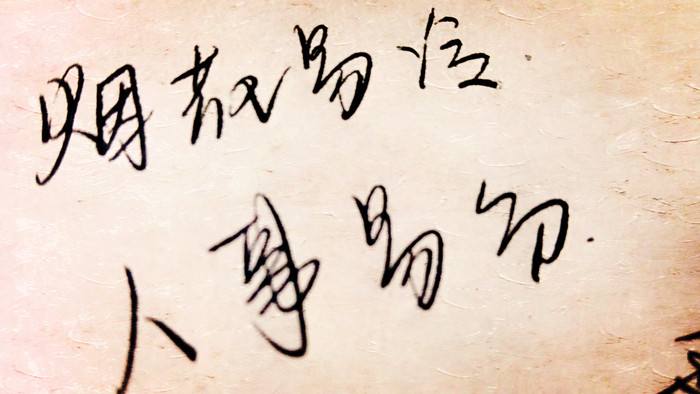 烟花易冷
人事易分